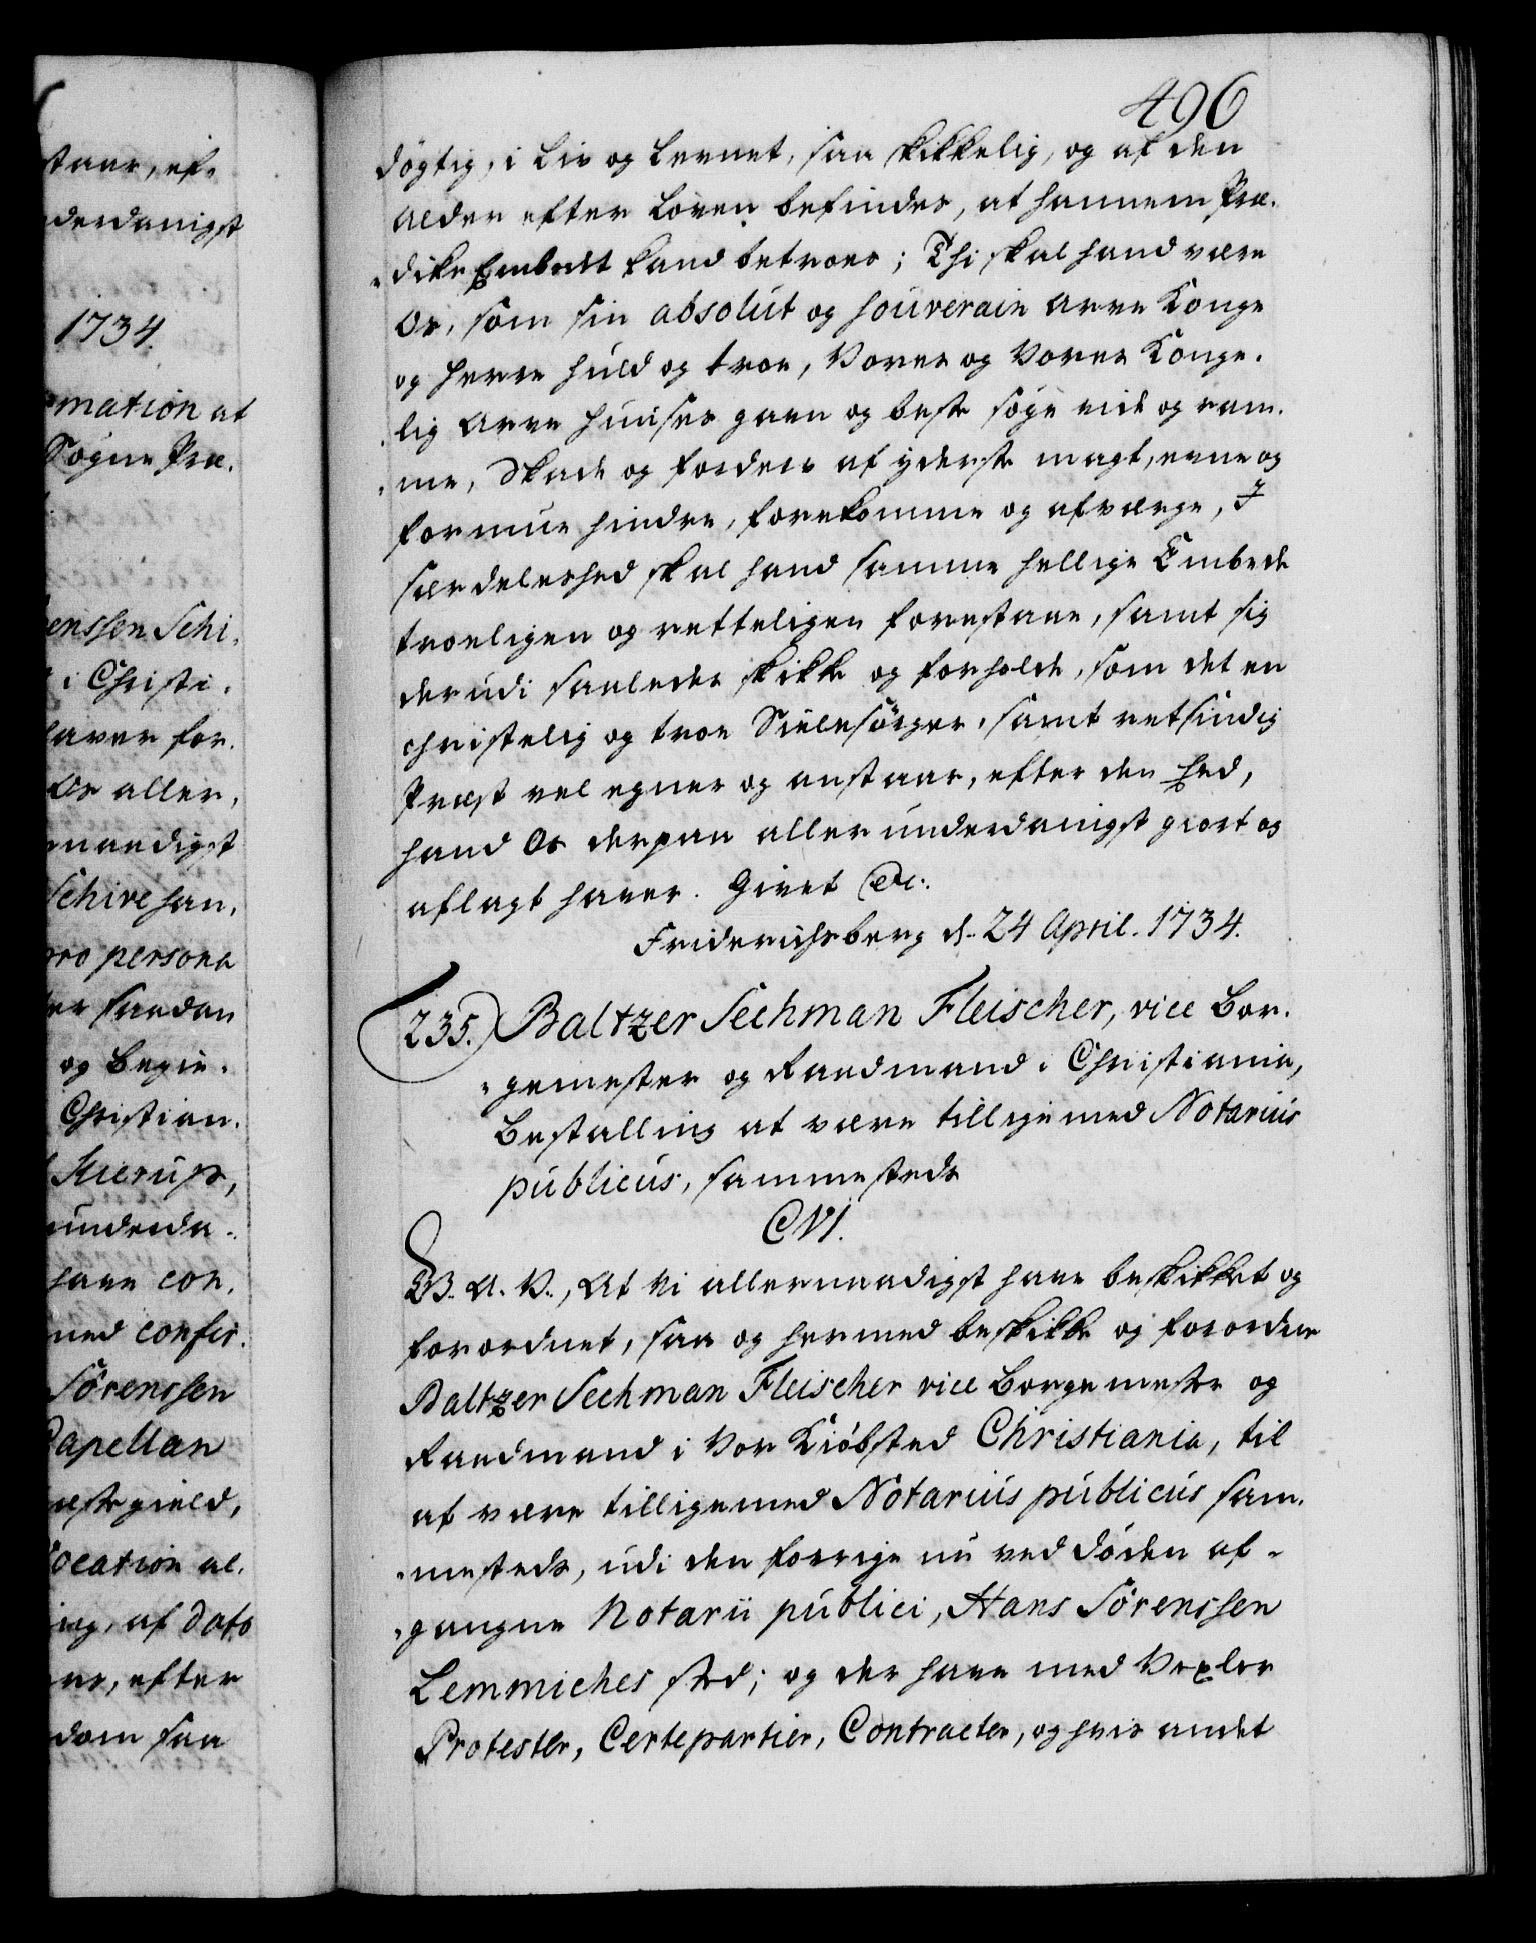 496
døgtig, i Liv og Levnet, saa skikkelig, og af den
Alder efter Loven befindes, at hannem Præ-
dike Embedt kand betroes; Thi skal hand være
Os, som sin absolut og souverain Arve Konge
og Herre huld og troe, Vores og Vores Konge-
lig Arve Huuses gavn og beste søge vide og ram-
me, Skade og forderv af yderste magt, evne og
formue hindre, forekomme og afværge, I
særdeleshed skal hand samme hellige Embede
troeligen og retteligen forestaae, samt sig
derudi saaledes skikke og forholde, som det en
christelig og troe Sielesørger, samt retsindig
Præst vel egner og anstaar, efter den Eed,
hand Os derpaa allerunderdanigst giort og
aflagt haver. Givet etc:
Friderichsberg d. 24 April. 1734.
235. Baltzer Sechman Fleischer, vice Bor-
gemester og Raadmand i Christiania,
Bestalling at være tilligemed Notarius
publicus, sammesteds
C VI.
G. A. V., At Vi allernaadigst have beskikket og
forordnet, saa og hermed beskikke og forordne
Baltzer Sechman Fleischer vice Borgemester og
Raadmand i Vor Kiøbsted Christiania, til
at være tilligemed Notarius publicus sam-
mesteds, udi den forrige nu ved døden af-
gangne Notarii publici, Hans Sørenssen
Lemmiches sted; og der have med Vexler
Protester, Certepartier, Contracter, og hvis andet
staar, ef-
derdanigst
1734.
mation at
Sogne Præ-
enssen Schi-
i Christi-
haver for-
Os aller-
naadigst
Schive han-
pro persona
saadan
og Begie-
Christian-
underda-
have con-
med confir-
Sørenssen
Capellan
æstegield,
vocation al-
ing, af dato
efter
dom saa